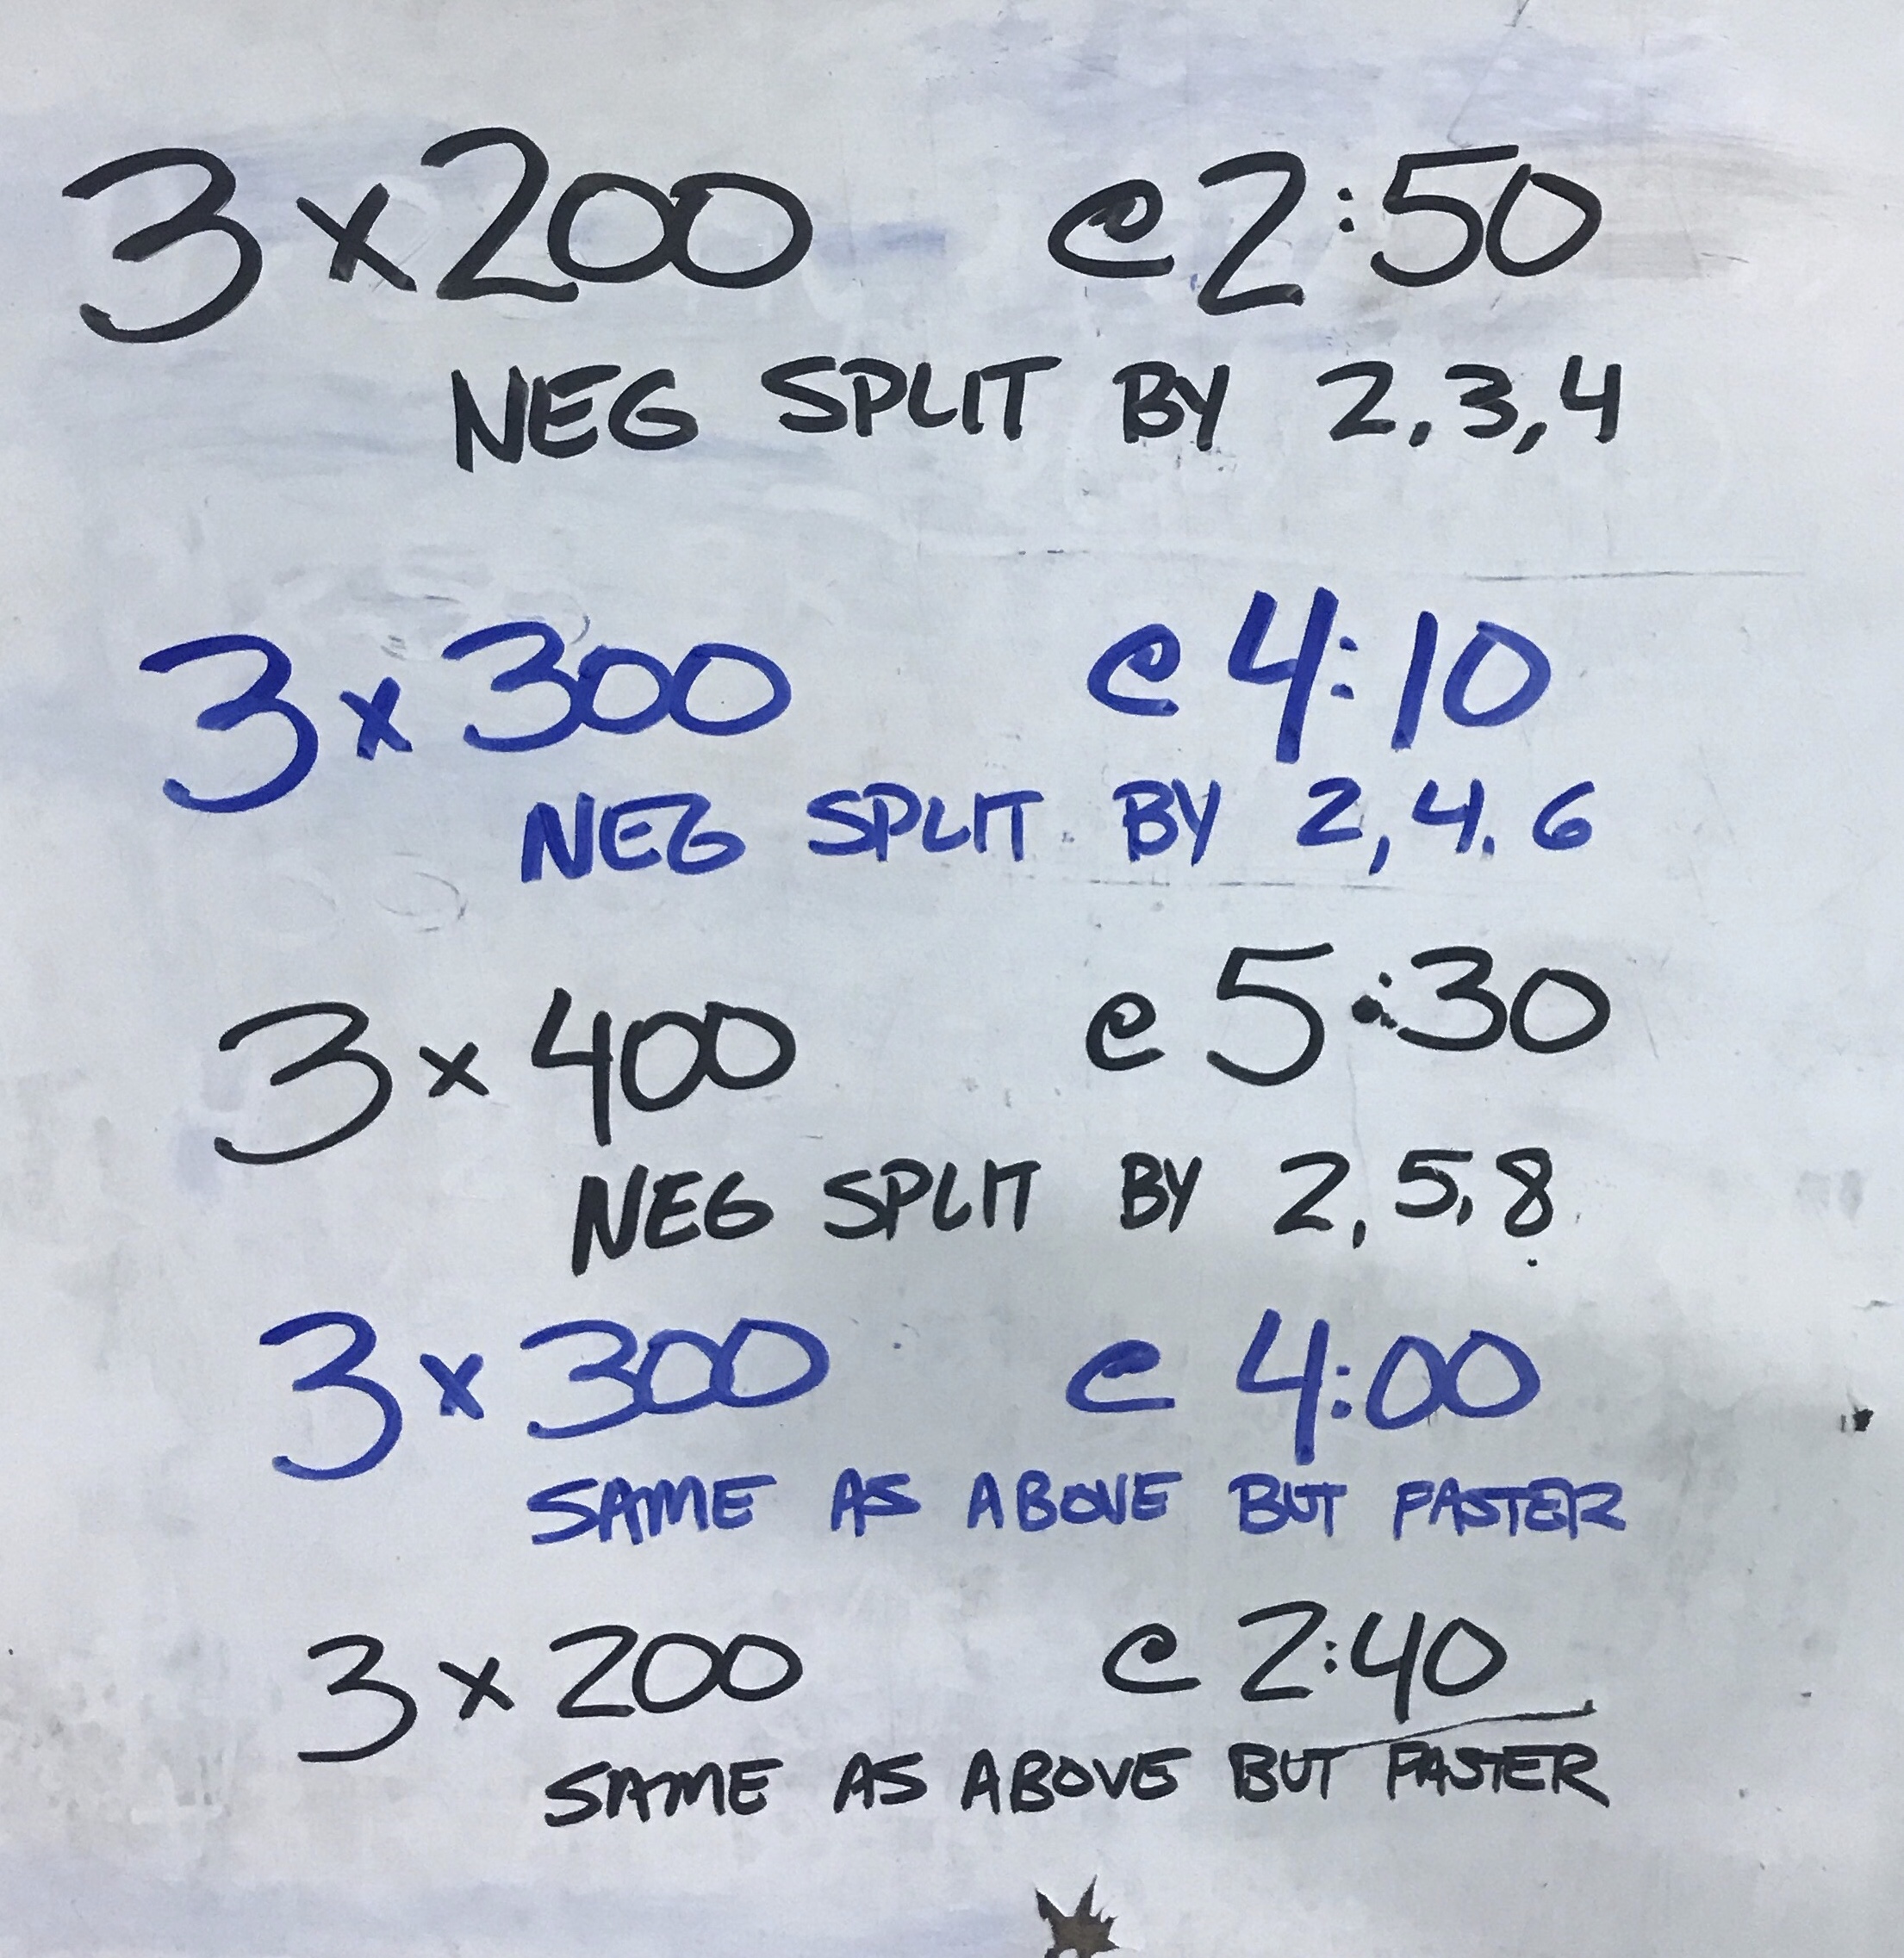 3 x 200 @ 2:50
NEG SPLIT BY 2,3,4
3 x 300 @ 4:10
NEG SPLIT BY 2,4.6
3 x 400 @ 5:30
NEG SPLIT BY 2,5,8
3 x 300 @ 4:00
SAME AS ABOVE BUT FASTER
3 x 200 @ 2:40
SAME AS ABOVE BUT FASTER